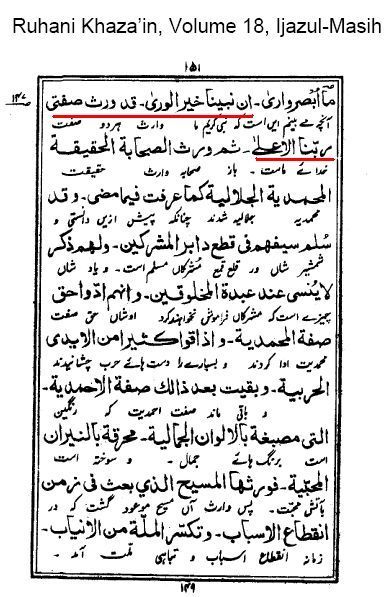 Ruhani Khaza'in, Volume 18, Ijazul-Masih
۱۵۱
۱۴۷
ما أبصر وارى۔ ان نبينا خير الورى۔ قد ورث صفتى
آنچه مے بینم این است که نبی کریم ما وارث هر دو صفت
ربّنا الاعلىٰ۔ ثم ورث الصحابة الحقيقة
خدائے ماست۔ باز صحابه وارث حقیقت
المحمدية الجلالية كما عرفت فيما مضى۔ وقد
محمدیه جلالیه شدند چنانکه پیش ازین دانستی و
سُلّم سيفهم في قطع دابر المشركين۔ ولهم ذكر
شمشیر شان در قطع مشرکان مسلم است۔ و یاد شان
لا يُنسى عند عبدة المخلوقين۔ وانهم ادّوا حق
چیزے است که مشرکان فراموش نخواهند کرد اوشان حق صفت
صفة المحمدية۔ واذاقوا كثيرا من الايدى
محمدیت ادا کردند و بسیارے را دست هائے حرب چشانیدند
الحربية۔ وبقيت بعد ذالك صفة الاحمدية۔
و باقی ماند صفت احمدیت که رنگین
التى مصبغة بالالوان الجمالية۔ محرقة بالنيران
است برنگ هائے جمال۔ و سوخته است
المحبّية۔ فورثها المسيح الذى بعث فى زمن
بآتش محبّت۔ پس وارث آں مسیح موعود گشت که در
انقطاع الاسباب۔ وتكسّر الملّة من الانياب۔
زمانه انقطاع اسباب و تباهی ملّت آمد۔
۱۴۹